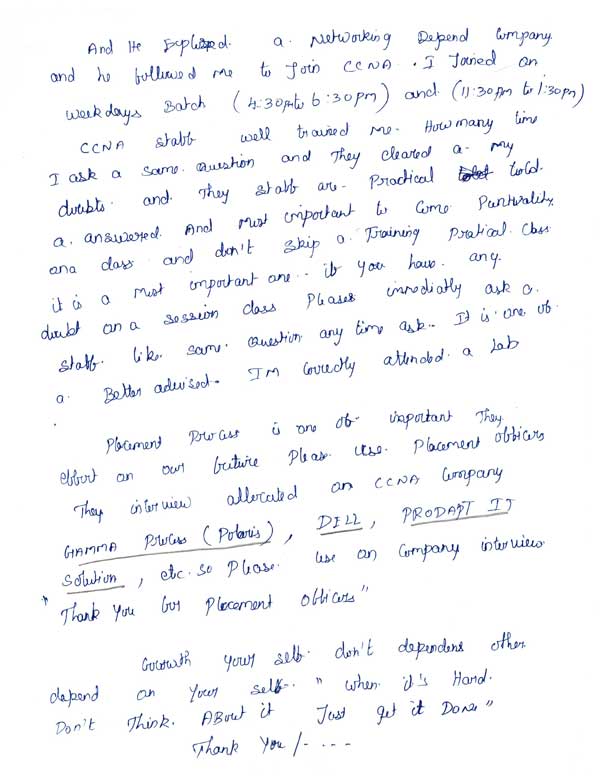 And He Explized. a. Networking Depend Company
and he followed me to Join CCNA. I Joined an
Weekdays Batch (4:30pm to 6:30pm) and (11:30pm to 1:30pm)
CCNA staff well trained me. How many time
I ask a same. Question and They cleared a. my
doubts. and. They staff are. Practical told.
a. answered. And most important to Come Puntuality.
ana class and don't skip a. Training Pratical Class
it is a most important one.. if you have. any.
doubt an a session class Pleases immediatly ask a.
staff. like. same. Question any time ask.. It is one of.
a. Better adviced. I'm Correctly attended. a Lab
Placement Process is one of important They
effort an our future Please. Use. Placement officers
They interview allocated an CCNA Company
GAMMA Process (Polaris), DELL, PRODAPT IT
Solution, etc. so Please. use an Company interview.
"Thank You for Placement Officers"
Growth Your self. don't dependens other
depend an Your self.. "when it's Hard.
Don't Think. ABout it Just get it Done"
Thank You /- - - -